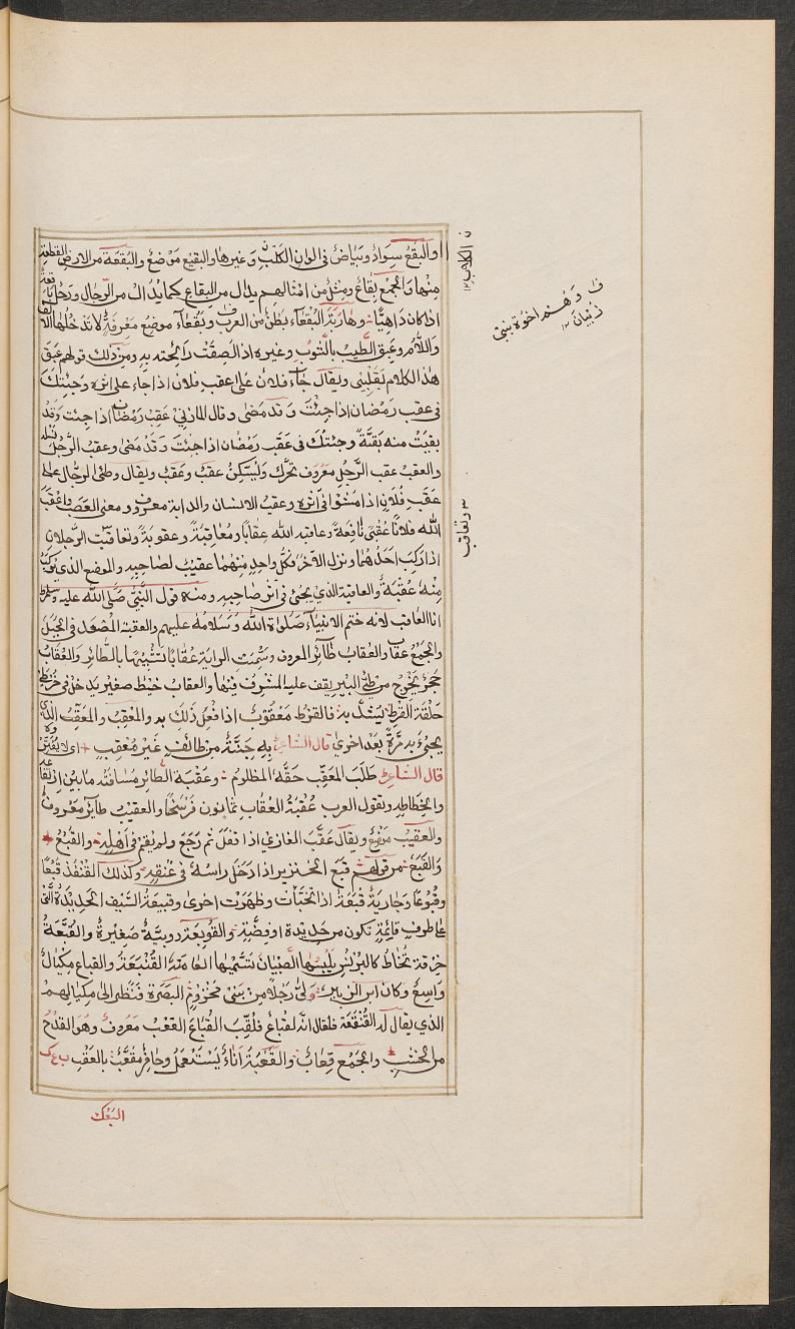 والبقع سواد وبياض فى الوان الكلب وغيرها والبقيع موضع والبقعة من الارض القطعة
منها والجمع بقاع ومثل من امثالهم يدال من البقاع كما يدال من الرجال ورجل باقعة
اذا كان داهيًا وهاربة البقعاء بطن من العرب وبقعاء موضع معرفة لا تدخلها الالف
واللام وعبق الطيب بالثوب وغيره اذا لصقت رائحته به ومن ذلك قولهم عبق
هذا الكلام بقلبى ويقال جاء فلان على عقب فلان اذا جاء على اثره وجئتك
فى عقب رمضان اذا جئت وقد مضى وقال المازنى عقب رمضان اذا جئت وقد
بقيت منه بقية وجئتك فى عقب رمضان اذا جئت وقد مضى وعقب الرجل نسله
والعقب عقب الرجل معروف تحرك وتسكن عقب وعقب ويقال وطئ الرجال على
عقب فلان اذا مشوا فى اثره وعقب الانسان والدابة معروف ومعنى العصب واعقب
الله فلانًا عقبى نافعة وعاقبه الله عقابًا ومعاقبةً وعقوبةً وتعاقبت الرجلان
اذا ركب احدهما ونزل الآخر فكل واحد منهما عقيب لصاحبه والموضع الذى يركب
منه عقبة والعاقبة الذى يجئ فى اثر صاحبه ومنه قول النبى صلى الله عليه وسلم
انا العاقب لانه ختم الانبياء صلواة الله وسلامه عليهم والعقبة المصعد فى الجبل
والجمع عقاب والعقاب طائر المعروف وسميت الراية عقابًا تشبيهًا بالطائر والعقاب
حجر يخرج من طى البئر يقف عليه المشرف فيها والعقاب خيط صغير يدخل فى خرتى
حلقة القرط يشد به فالقرط معقوب اذا فعل ذلك به والمعقب والمعقب الذى
يجئ به مرة بعد اخرى قال الشاعر به جنة من طائف غير معقب اى لا يفتر
قال الشاعر طلب المعقب حقه المظلوم وعقبة الطائر مسافة ما بين ارتفاعه
وانخطاطه وتقول العرب عقبة العقاب ثمانون فرسخًا والعقيب طائر معروف
والعقيب موضع ويقال عقب الغازى اذا قفل ثم رجع ولم يقر فى اهله والقبع
والقبع من قولهم قبع الخنزير اذا دخل راسه فى عنقه وكذلك القنفذ قبعًا
وقبوعًا وجارية قبعة اذا تخبأت وظهرت اخرى وقبيعة السيف الحديدة التى
على طرف قائمه تكون من حديدة او فضة والقوبعة دويبة صغيرة والقبعة
خرقة تخاط كالبرنس يلبسها الصبيان تسميها العامة القنبعة والقباع مكيال
واسع وكان ابن الزبير ولى رجلًا من بنى مخزوم البصرة فنظر الى مكيالهم
الذى يقال له القنقعة فقال انه لقباع فلقب القباع القعب معروف وهو القدح
من الخشب والجمع قعاب والقعبة اناء يستعمل وحافر مقعب بالعقب ب ع ك
البعك
ن الكلاب
وتعاقب
ف وهم اخوة بنى
ذبيان